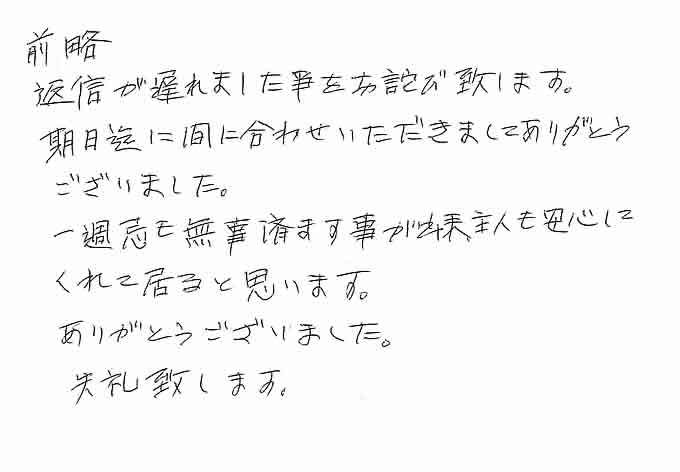 前略
返信が遅れました事をお詫び致します。
期日迄に間に合わせいただきましてありがとう
ございました。
一週忌も無事済ます事が出来主人も安心して
くれて居ると思います。
ありがとうございました。
失礼致します。